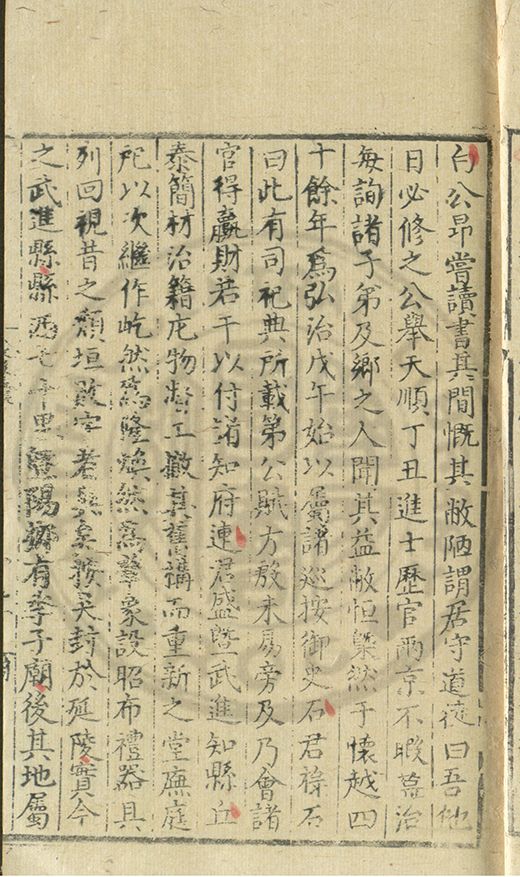 白公昂嘗讀書其間慨其敝陋謂居守道達曰吾他
日必修之公舉天順丁丑進士歷官兩京不暇葺治
每詢諸子弟及鄉之人聞其益敝恒槩然于懷越四
十餘年為弘治戊午始以屬諸巡按御史石君祿石
曰此有司祀典所載第公賦方殷未易旁及乃會諸
官得羸財若干以付諸知府連君盛暨武進知縣丘
泰簡材治籍庀物督工撤其舊構而重新之堂廡庭
陀以次繼作屹然為隆煥然為羣象設昭布禮器具
列回視昔之頹垣敗宇者異矣按吳封於延陵實今
之武進縣縣西七十里暨陽鄉有季子廟後其地屬